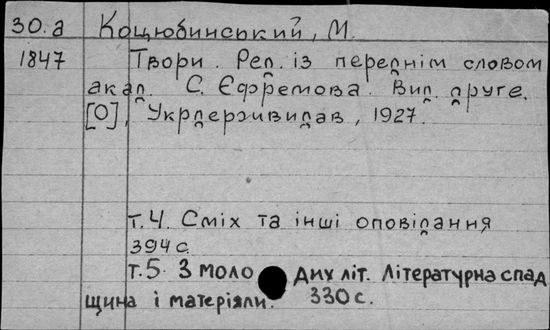 30.а Коцюбинський, М.
1847 Твори. Ред. із переднім словом
акад. С. Єфремова. Вид. друге.
[О], Укрдержвидав, 1927.
т.4. Сміх та інші оповідання
394 с.
т.5 З моло дих літ. Літературна спад
щина і матеріяли. 330 с.